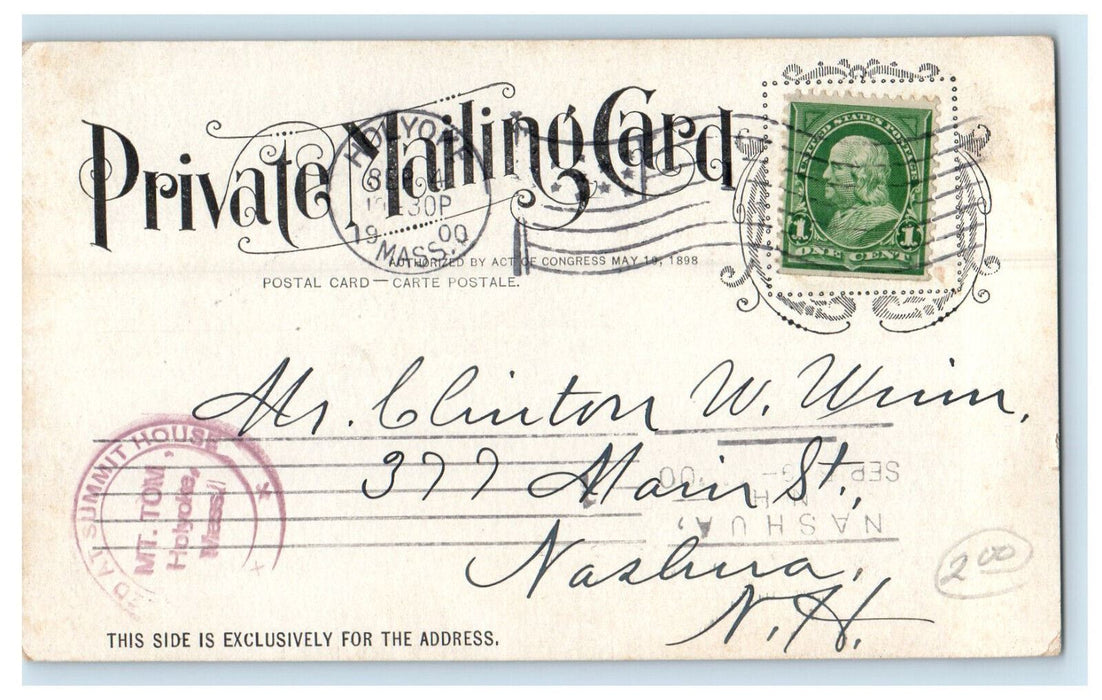 Private Mailing Card
HOLYOKE
SEP 4
30P
1900
MASS.
UNITED STATES POSTAGE
1 1
ONE CENT
AUTHORIZED BY ACT OF CONGRESS MAY 19, 1898
POSTAL CARD — CARTE POSTALE.
Mr. Clinton W. Winn,
377 Main St.,
Nashua,
N.H.
NASHUA,
N.H.
SEP '00
AT SUMMIT HOUSE
MT. TOM,
Holyoke,
Mass.
2 00
THIS SIDE IS EXCLUSIVELY FOR THE ADDRESS.